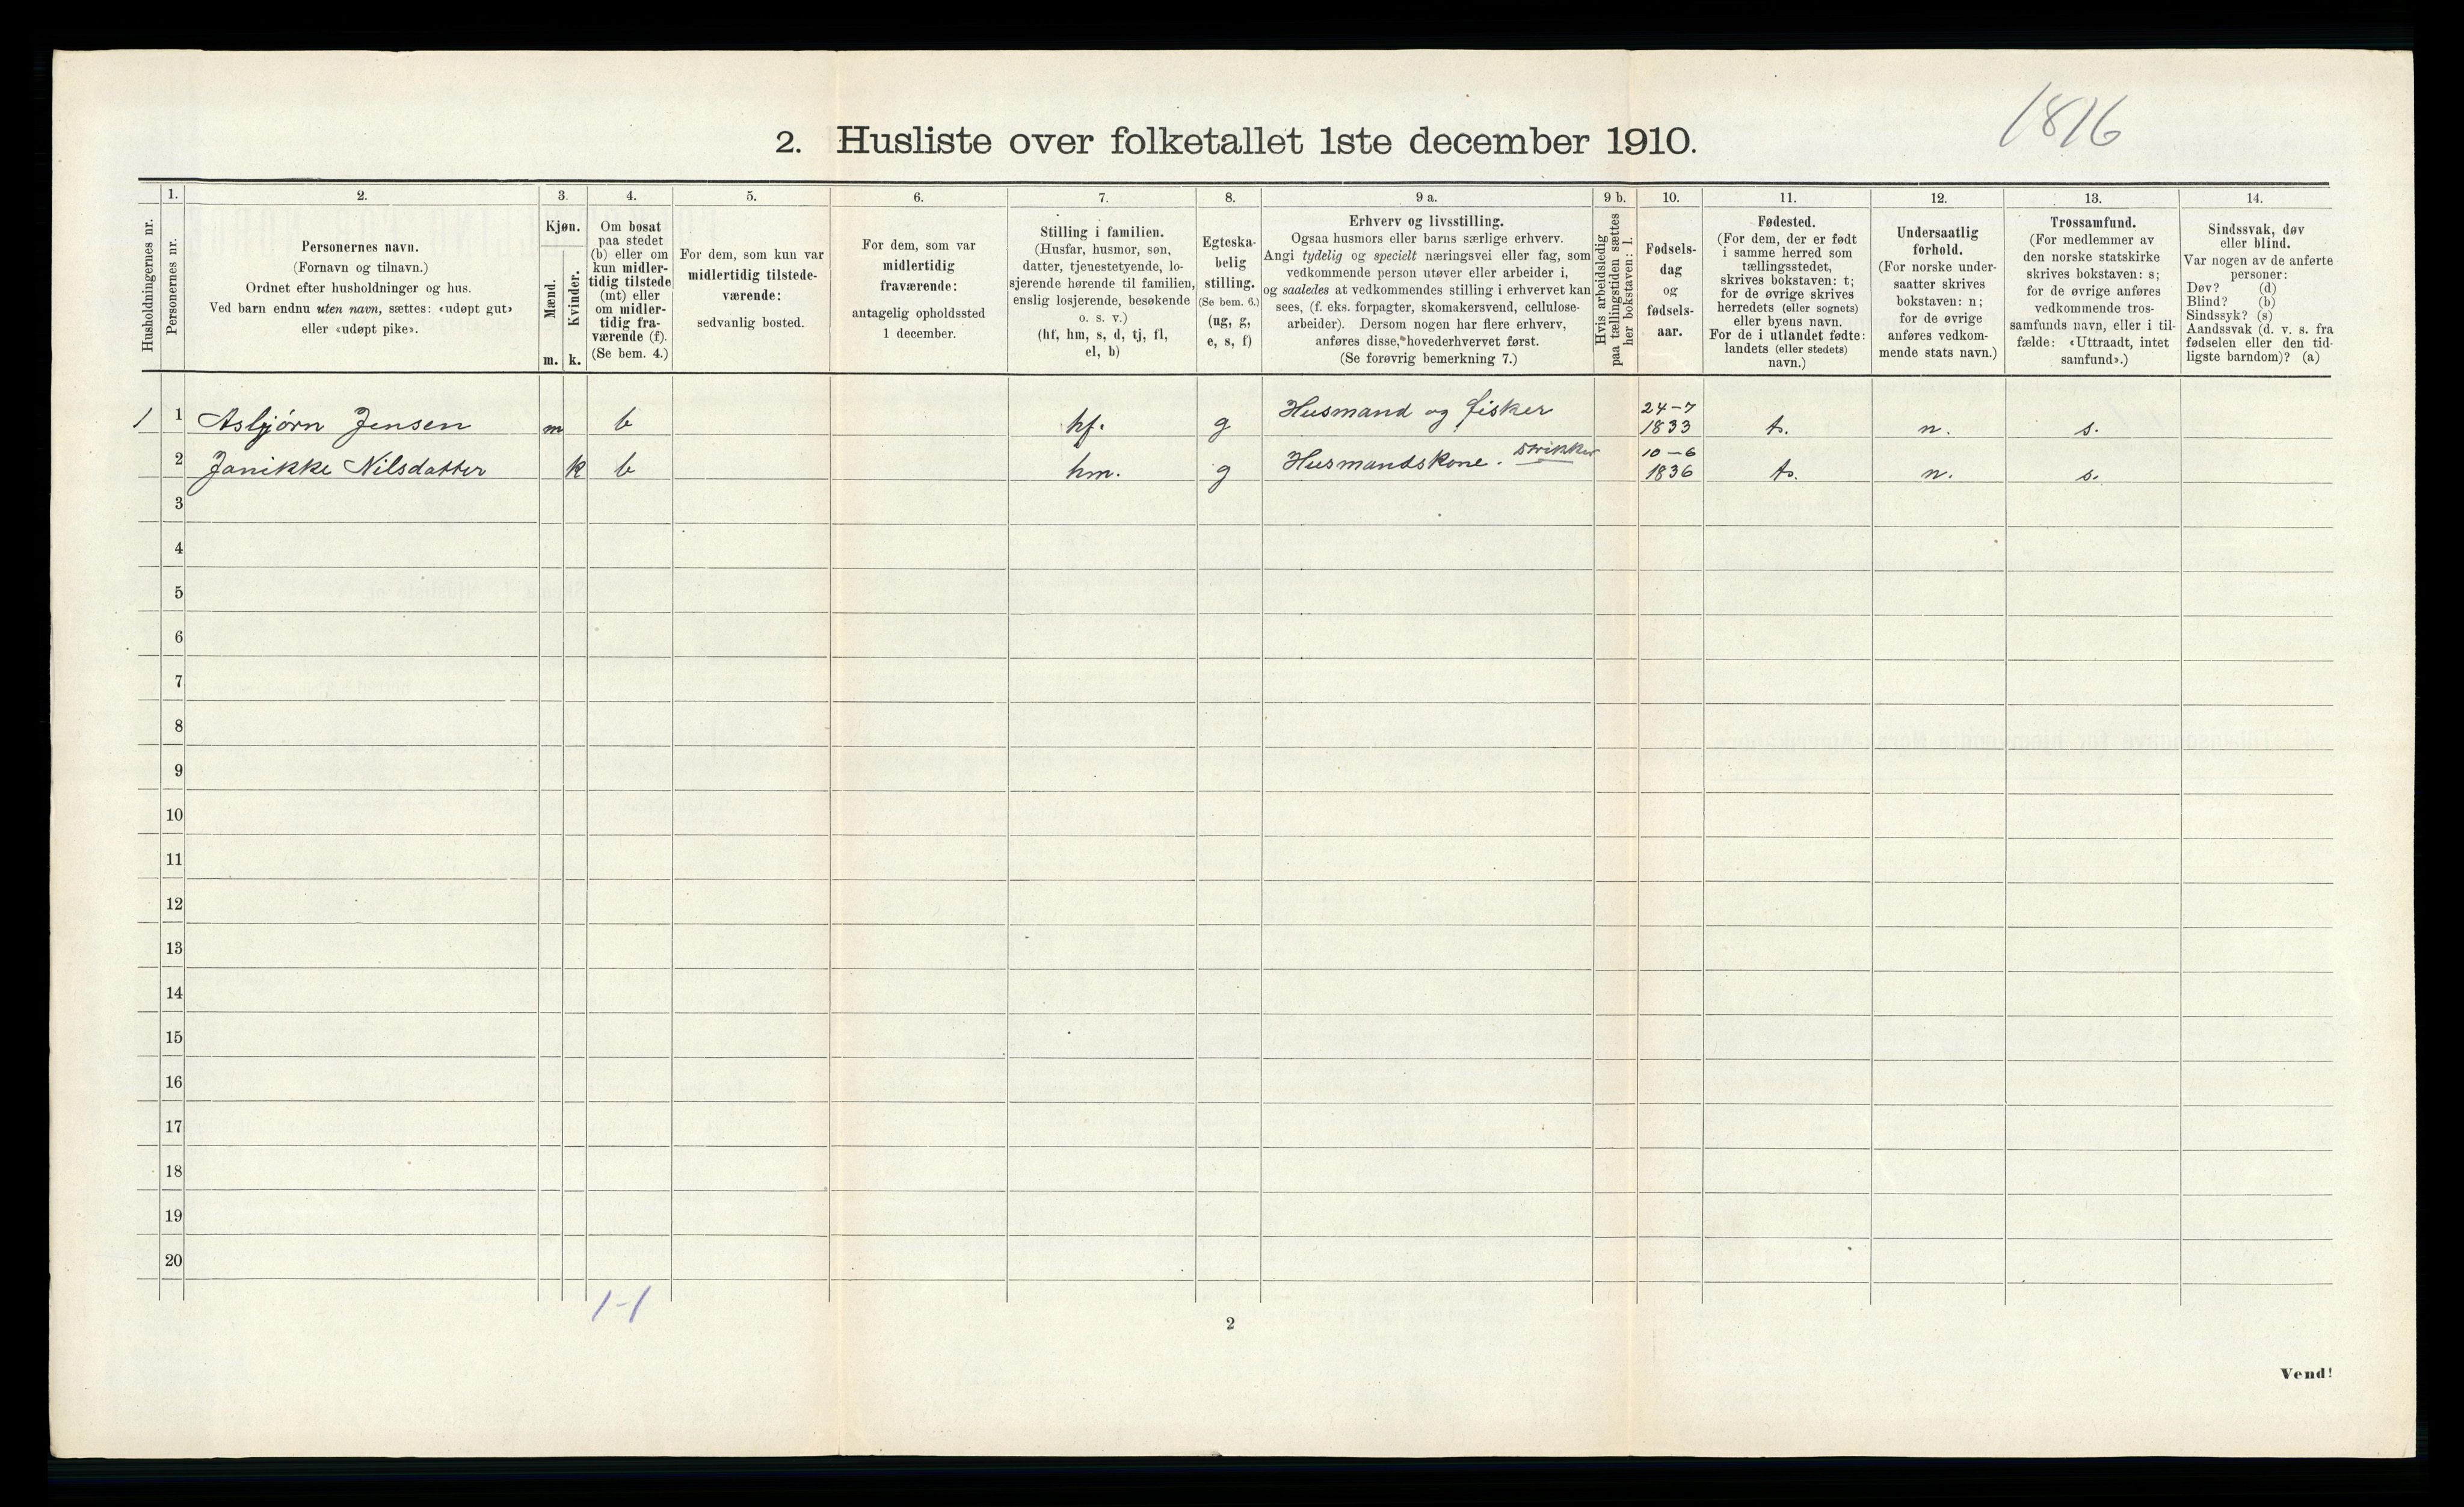 1816
2. Husliste over folketallet 1ste december 1910.
Husholdningernes nr.
1.
Personernes nr.
2.
Personernes navn.
(Fornavn og tilnavn.)
Ordnet efter husholdninger og hus.
Ved barn endnu uten navn, sættes: «udøpt gut»
eller «udøpt pike».
3.
Kjøn.
Mænd.
m.
Kvinder.
k.
4.
Om bosat
paa stedet
(b) eller om
kun midler-
tidig tilstede
(mt) eller
om midler-
tidig fra-
værende (f).
(Se bem. 4.)
5.
For dem, som kun var
midlertidig tilstede-
værende:
sedvanlig bosted.
6.
For dem, som var
midlertidig
fraværende:
antagelig opholdssted
1 december.
7.
Stilling i familien.
(Husfar, husmor, søn,
datter, tjenestetyende, lo-
sjerende hørende til familien,
enslig losjerende, besøkende
o. s. v.)
(hf, hm, s, d, tj, fl,
el, b)
8.
Egteska-
belig
stilling.
(Se bem. 6.)
(ug, g,
e, s, f)
9 a.
Erhverv og livsstilling.
Ogsaa husmors eller barns særlige erhverv.
Angi tydelig og specielt næringsvei eller fag, som
vedkommende person utøver eller arbeider i,
og saaledes at vedkommendes stilling i erhvervet kan
sees, (f. eks. forpagter, skomakersvend, cellulose-
arbeider). Dersom nogen har flere erhverv,
anføres disse, hovederhvervet først.
(Se forøvrig bemerkning 7.)
9 b.
Hvis arbeidsledig
paa tællingstiden sættes
her bokstaven: l.
10.
Fødsels-
dag
og
fødsels-
aar.
11.
Fødested.
(For dem, der er født
i samme herred som
tællingsstedet,
skrives bokstaven: t;
for de øvrige skrives
herredets (eller sognets)
eller byens navn.
For de i utlandet fødte:
landets (eller stedets)
navn.)
12.
Undersaatlig
forhold.
(For norske under-
saatter skrives
bokstaven: n;
for de øvrige
anføres vedkom-
mende stats navn.)
13.
Trossamfund.
(For medlemmer av
den norske statskirke
skrives bokstaven: s;
for de øvrige anføres
vedkommende tros-
samfunds navn, eller i til-
fælde: «Uttraadt, intet
samfund».)
14.
Sindssvak, døv
eller blind.
Var nogen av de anførte
personer:
Døv? (d)
Blind? (b)
Sindssyk? (s)
Aandssvak (d. v. s. fra
fødselen eller den tid-
ligste barndom)? (a)
1 1 Asbjørn Jensen m b hf. g Husmand og fisker 24-7 1833 t. n. s.
2 Janikke Nilsdatter k b hm. g Husmandskone. strikker 10-6 1836 t. n. s.
3
4
5
6
7
8
9
10
11
12
13
14
15
16
17
18
19
20
1-1
2
Vend!